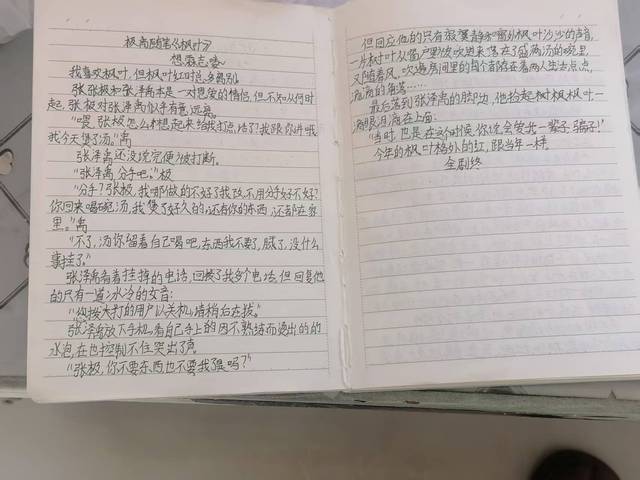 极禹随笔《枫叶》
我喜欢枫叶,但枫叶红时总多离别。
张极和张泽禹本是一对恩爱的情侣,但不知从何时
起,张极对张泽禹似乎有意远离。
"喂,张极怎么才想起来给我打点话了?我跟你讲哦
我今天煲了汤。"禹
张泽禹还没说完便被打断。
"张泽禹,分手吧。"极
"分手?张极,我哪做的不好了我改,不用分手好不好?
你回来喝碗汤,我煲了好久的,还有你的东西,还都在家
里。"禹
"不了,汤你留着自己喝吧,东西我不要了,腻了,没什么
事挂了。"
张泽禹看着挂掉的电话,回拨了几多个电话,但回复他
的只有一道冰冷的女音:
"您拨大打的用户以关机,请稍后在拔。"
张泽禹放下手机,看自己手上的因不熟练而烫出的的
水泡,在也控制不住哭出了声。
"张极,你不要东西也不要我了是吗?"
但回应他的只有寂寞静和窗外枫叶沙沙的声音,
一片枫叶从窗户里被吹进来落在了盛满汤的碗里,
又随着风,吹遍房间里的每个都存在着两人生活点点,
滴滴的角落……
最后落到张泽禹的脚边,他拾起树枫枫叶一
滴眼泪,滴在上面:
"当时,也是在这时候,你说会爱我一辈子,骗子!"
今年的枫叶格外的红,跟当年一样。
全剧终